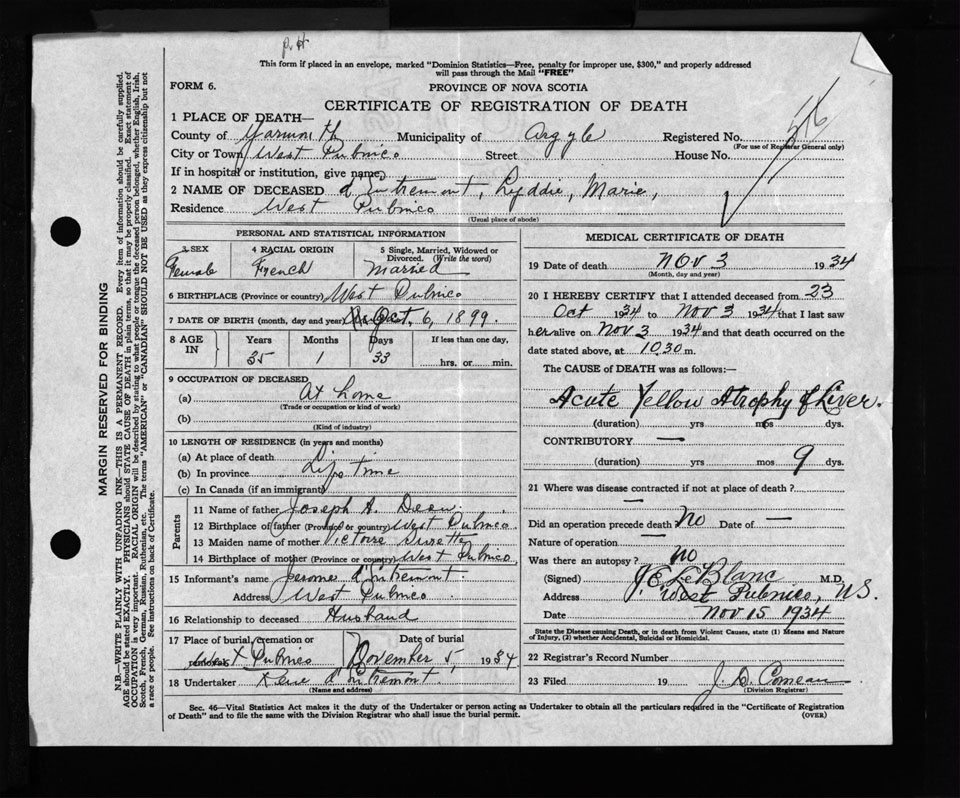 P.H
This form if placed in an envelope, marked "Dominion Statistics—Free, penalty for improper use, $300," and properly addressed
will pass through the Mail "FREE"
FORM 6.
PROVINCE OF NOVA SCOTIA
CERTIFICATE OF REGISTRATION OF DEATH
1 PLACE OF DEATH—
County of Yarmouth Municipality of Argyle Registered No.
(For use of Registrar General only)
City or Town West Pubnico Street House No.
If in hospital or institution, give name
2 NAME OF DECEASED d'Entremont, Lyddie, Marie,
Residence West Pubnico
(Usual place of abode)
PERSONAL AND STATISTICAL INFORMATION
3 SEX 4 RACIAL ORIGIN 5 Single, Married, Widowed or
Divorced. (Write the word)
Female French Married
6 BIRTHPLACE (Province or country) West Pubnico
7 DATE OF BIRTH (month, day and year) Oct. 6, 1899.
8 AGE IN Years Months Days If less than one day,
35 1 33 hrs. or min.
9 OCCUPATION OF DECEASED
(a) At home
(Trade or occupation or kind of work)
(b)
(Kind of industry)
10 LENGTH OF RESIDENCE (in years and months)
(a) At place of death
(b) In province Life time
(c) In Canada (if an immigrant)
Parents
11 Name of father Joseph A.
12 Birthplace of father (Province or country) West Pubnico
13 Maiden name of mother Victoire Surette
14 Birthplace of mother (Province or country) West Pubnico
15 Informant's name d'Entremont
Address West Pubnico
16 Relationship to deceased Husband
17 Place of burial, cremation or Date of burial
West Pubnico November 5, 1934
18 Undertaker d'Entremont
(Name and address)
MEDICAL CERTIFICATE OF DEATH
19 Date of death Nov 3 1934
(Month, day and year)
20 I HEREBY CERTIFY that I attended deceased from 23
Oct 1934 to Nov 3 1934 that I last saw
her alive on Nov 3 1934 and that death occurred on the
date stated above, at 1030 m.
The CAUSE of DEATH was as follows:—
Acute Yellow Atrophy of Liver.
(duration) yrs mos dys.
CONTRIBUTORY —
(duration) yrs mos 9 dys.
21 Where was disease contracted if not at place of death?
—
Did an operation precede death No Date of —
Nature of operation —
Was there an autopsy? no
(Signed) J. E. LeBlanc M.D.
Address West Pubnico, N.S.
Date Nov 15 1934
State the Disease causing Death, or in death from Violent Causes, state (1) Means and Nature
of Injury, (2) whether Accidental, Suicidal or Homicidal.
22 Registrar's Record Number
23 Filed 19 Comeau
(Division Registrar)
Sec. 46—Vital Statistics Act makes it the duty of the Undertaker or person acting as Undertaker to obtain all the particulars required in the "Certificate of Registration
of Death" and to file the same with the Division Registrar who shall issue the burial permit.
(OVER)
MARGIN RESERVED FOR BINDING
N.B.—WRITE PLAINLY WITH UNFADING INK—THIS IS A PERMANENT RECORD. Every item of information should be carefully supplied.
AGE should be stated EXACTLY. PHYSICIANS should STATE CAUSE OF DEATH in plain terms, so that it may be properly classified. Exact statement of
OCCUPATION is very important. RACIAL ORIGIN will be described by stating to what people or tongue the deceased person belonged, whether English, Irish,
Scotch, French, German, Russian, Ruthenian, etc. The terms "AMERICAN" or "CANADIAN" SHOULD NOT BE USED as they express citizenship but not
a race or people. See instructions on back of Certificate.